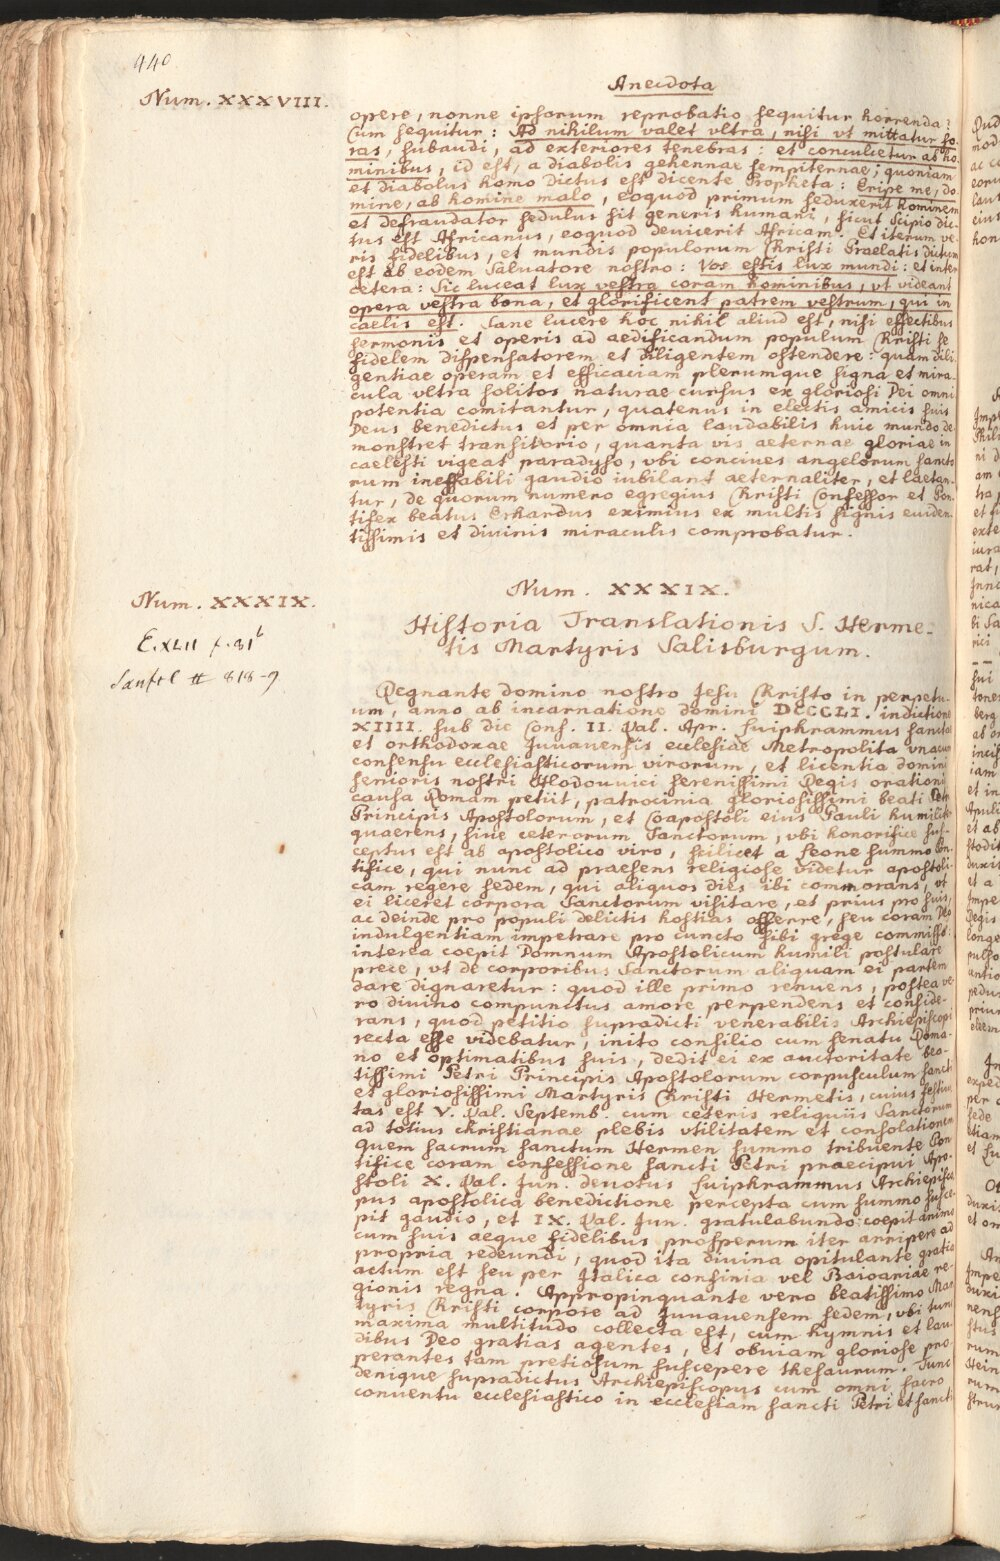 440
Anecdota
Num. XXXVIII.
opere, nonne ipsorum reprobatio sequitur horrenda?
Cum sequitur: Ad nihilum valet vltra, nisi vt mittatur fo-
ras, subaudi, ad exteriores tenebras: et conculcetur ab ho-
minibus, id est, a diabolis gehennae sempiternae; quoniam
et diabolus homo dictus est dicente Propheta: Eripe me, do-
mine, ab homine malo, eoquod primum seduxerit hominem
et defraudator sedulus sit generis humani, sicut Scipio dic-
tus est Africanus, eoquod devicerit Africam. Et iterum ve-
ris fidelibus, et mundis populorum Christi Praelatis dictum
est ab eodem Salvatore nostro: Vos estis lux mundi: et inter
cetera: Sic luceat lux vestra coram hominibus, vt videant
opera vestra bona, et glorificent patrem vestrum, qui in
caelis est. Sane lucere hoc nihil aliud est, nisi effectibus
sermonis et operis ad aedificandum populum Christi se
fidelem dispensatorem et diligentem ostendere: quam dili-
gentiae operam et efficaciam plerumque signa et mira-
cula vltra solitos naturae cursus ex gloriosi Dei omni-
potentia comitantur, quatenus in electis amicis suis
Deus benedictus et per omnia laudabilis huic mundo de-
monstret transitorio, quanta vis aeternae gloriae in
caelesti vigeat paradyso, vbi conciues angelorum sancto-
rum ineffabili gaudio iubilant aeternaliter, et laetan-
tur, de quorum numero egregius Christi Confessor et Pon-
tifex beatus Erhardus eximius ex multis signis euiden-
tissimis et diuinis miraculis comprobatur.
Num. XXXIX.
Num. XXXIX.
E. XLII f. 81b
# 818-9
Historia Translationis S. Herme-
tis Martyris Salisburgum.
Regnante domino nostro Jesu Christo in perpetu-
um, anno ab incarnatione domini DCCCLI. indictione
XIIII. sub die Cons. II. Kal. Apr. Luiphrammus sanctae
et orthodoxae Juuauensis ecclesiae Metropolita vnacum
consensu ecclesiasticorum virorum, et licentia domini
senioris nostri Hlodouuici serenissimi Regis orationis
causa Romam petiit, patrocinia gloriosissimi beati Petri
Principis Apostolorum, et Coapostoli eius Pauli humiliter
quaerens, siue ceterorum Sanctorum, vbi honorifice sus-
ceptus est ab apostolico viro, scilicet a Leone summo Pon-
tifice, qui nunc ad praesens religiose videtur apostoli-
cam regere sedem, qui aliquos dies ibi commorans, vt
ei liceret corpora Sanctorum visitare, et prius pro suis,
ac deinde pro populi delictis hostias offerre, seu coram Deo
indulgentiam impetrare pro cuncto sibi grege commisso.
interea coepit Domnum Apostolicum humili postulare
prece, vt de corporibus Sanctorum aliquam ei partem
dare dignaretur: quod ille primo renuens, postea ve-
ro diuino compunctus amore perpendens et conside-
rans, quod petitio supradicti venerabilis Archiepiscopi
recta esse videbatur, inito consilio cum senatu Roma-
no et optimatibus suis, dedit ei ex auctoritate bea-
tissimi Petri Principis Apostolorum corpusculum sancti
et gloriosissimi Martyris Christi Hermetis, cuius festiui-
tas est V. Kal. Septemb. cum ceteris reliquiis Sanctorum
ad totius christianae plebis vtilitatem et consolationem
quem sacrum sanctum Hermen summo tribuente Pon-
tifice coram confessione sancti Petri praecipui Apo-
stoli X. Kal. Jun. deuotus Luiphrammus Archiepisco-
pus apostolica benedictione percepta cum summo susce-
pit gaudio, et IX. Kal. Jun. gratulabundo coepit animo
cum suis aeque fidelibus prosperum iter arripere ad
propria redeundi, quod ita diuina opitulante gratia
actum est seu per Italica confinia vel Baioariae re-
gionis regna. Appropinquante vero beatissimo Mar-
tyris Christi corpore ad Juuauensem sedem, vbi tum
maxima multitudo collecta est, cum hymnis et lau-
dibus Deo gratias agentes, et obuiam gloriose pro-
perantes tam pretiosum suscepere thesaurum. Tunc
denique supradictus Archiepiscopus cum omni sacro
conuentu ecclesiastico in ecclesiam sancti Petri et sancti